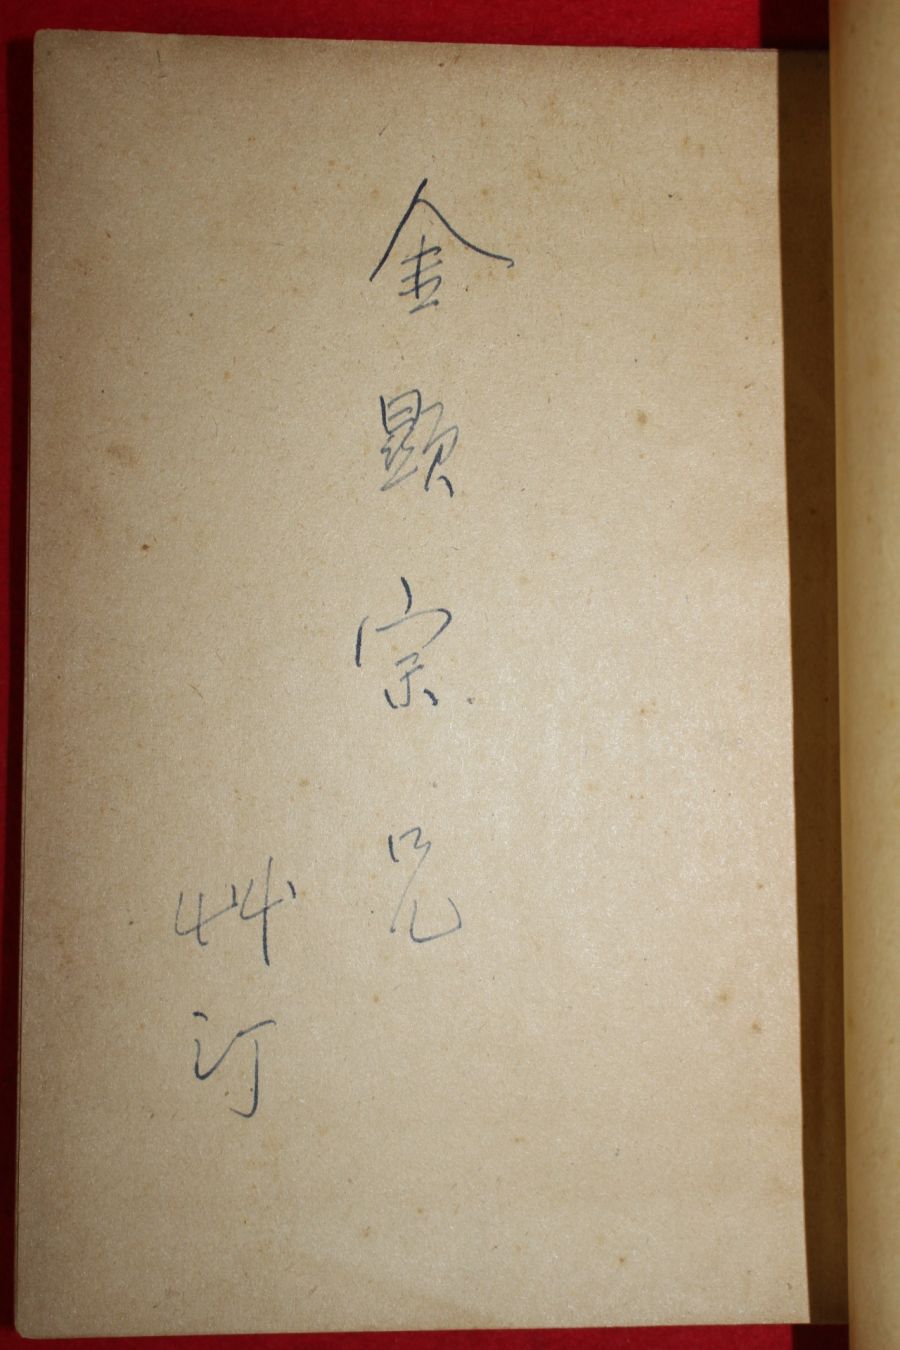 金顯宗兄
艸汀